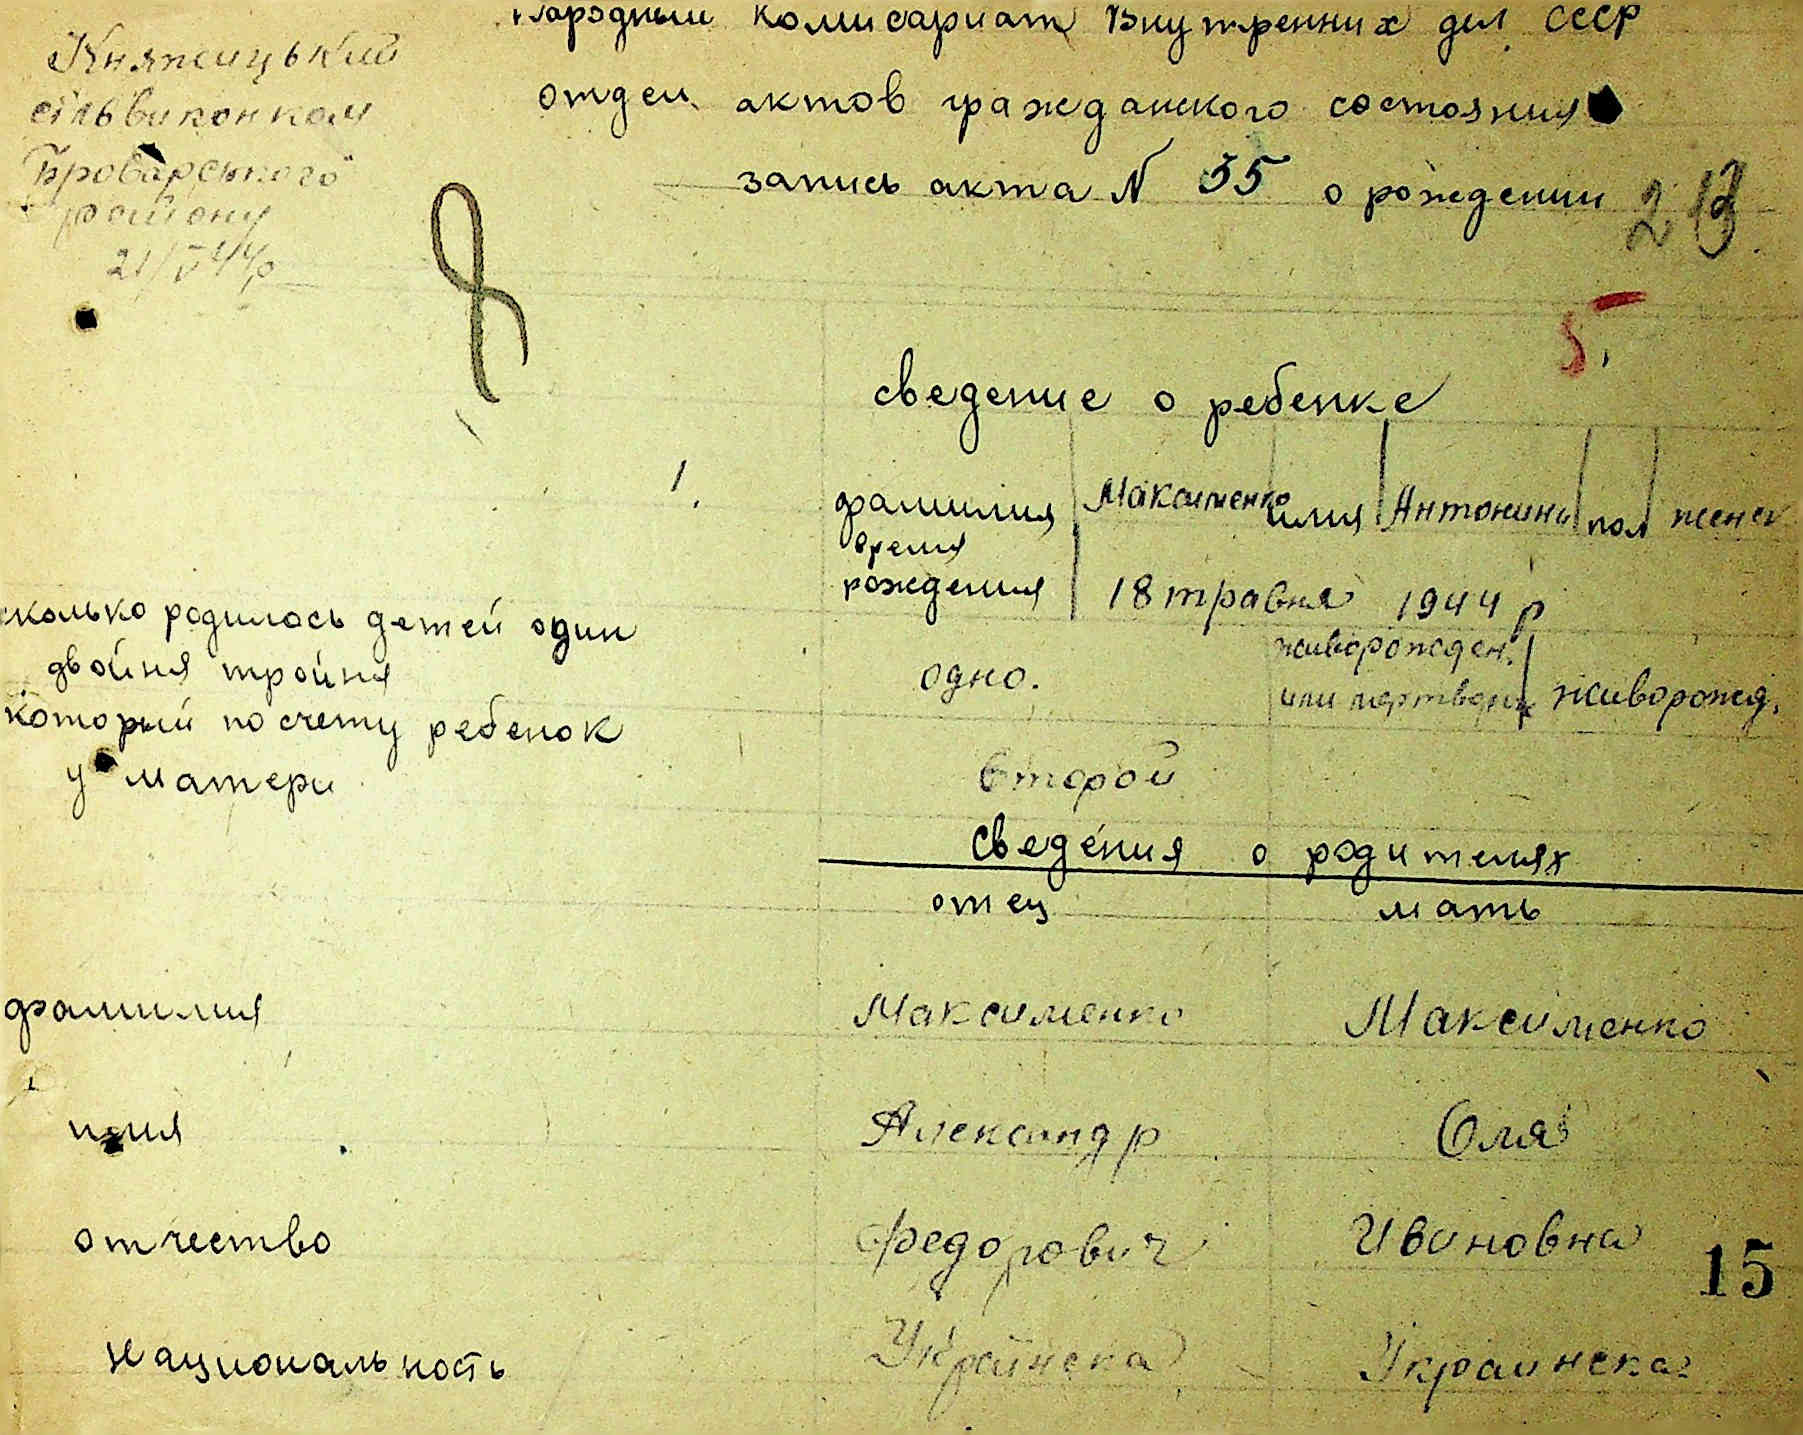 Народный комисариат Внутренних дел СССР
отдел актов гражданского состояния
запись акта N 35 о рождении
213
Княжицький
сільвиконком
Броварського
району
21/V 44р
5.
сведение о ребенке
1.
фамилия Максименко имя Антонина пол женск
время
рождения 18 травня 1944 р
сколько родилось детей один
двойня тройня
одно.
живорожден.
или мертворж живорожд.
который по счету ребенок
у матери
второй
Сведения о родителях
отец мать
фамилия Максименко Максименко
имя Александр Оля
отчество Федорович Ивановна
15
национальность Українска Украинска